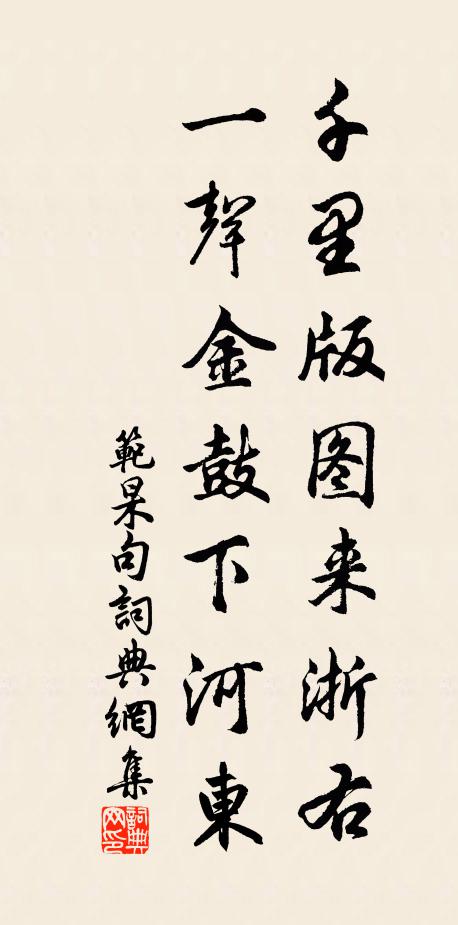 千里版图来浙右
一聲金鼓下河東
範杲句詞典網集
詞典网印